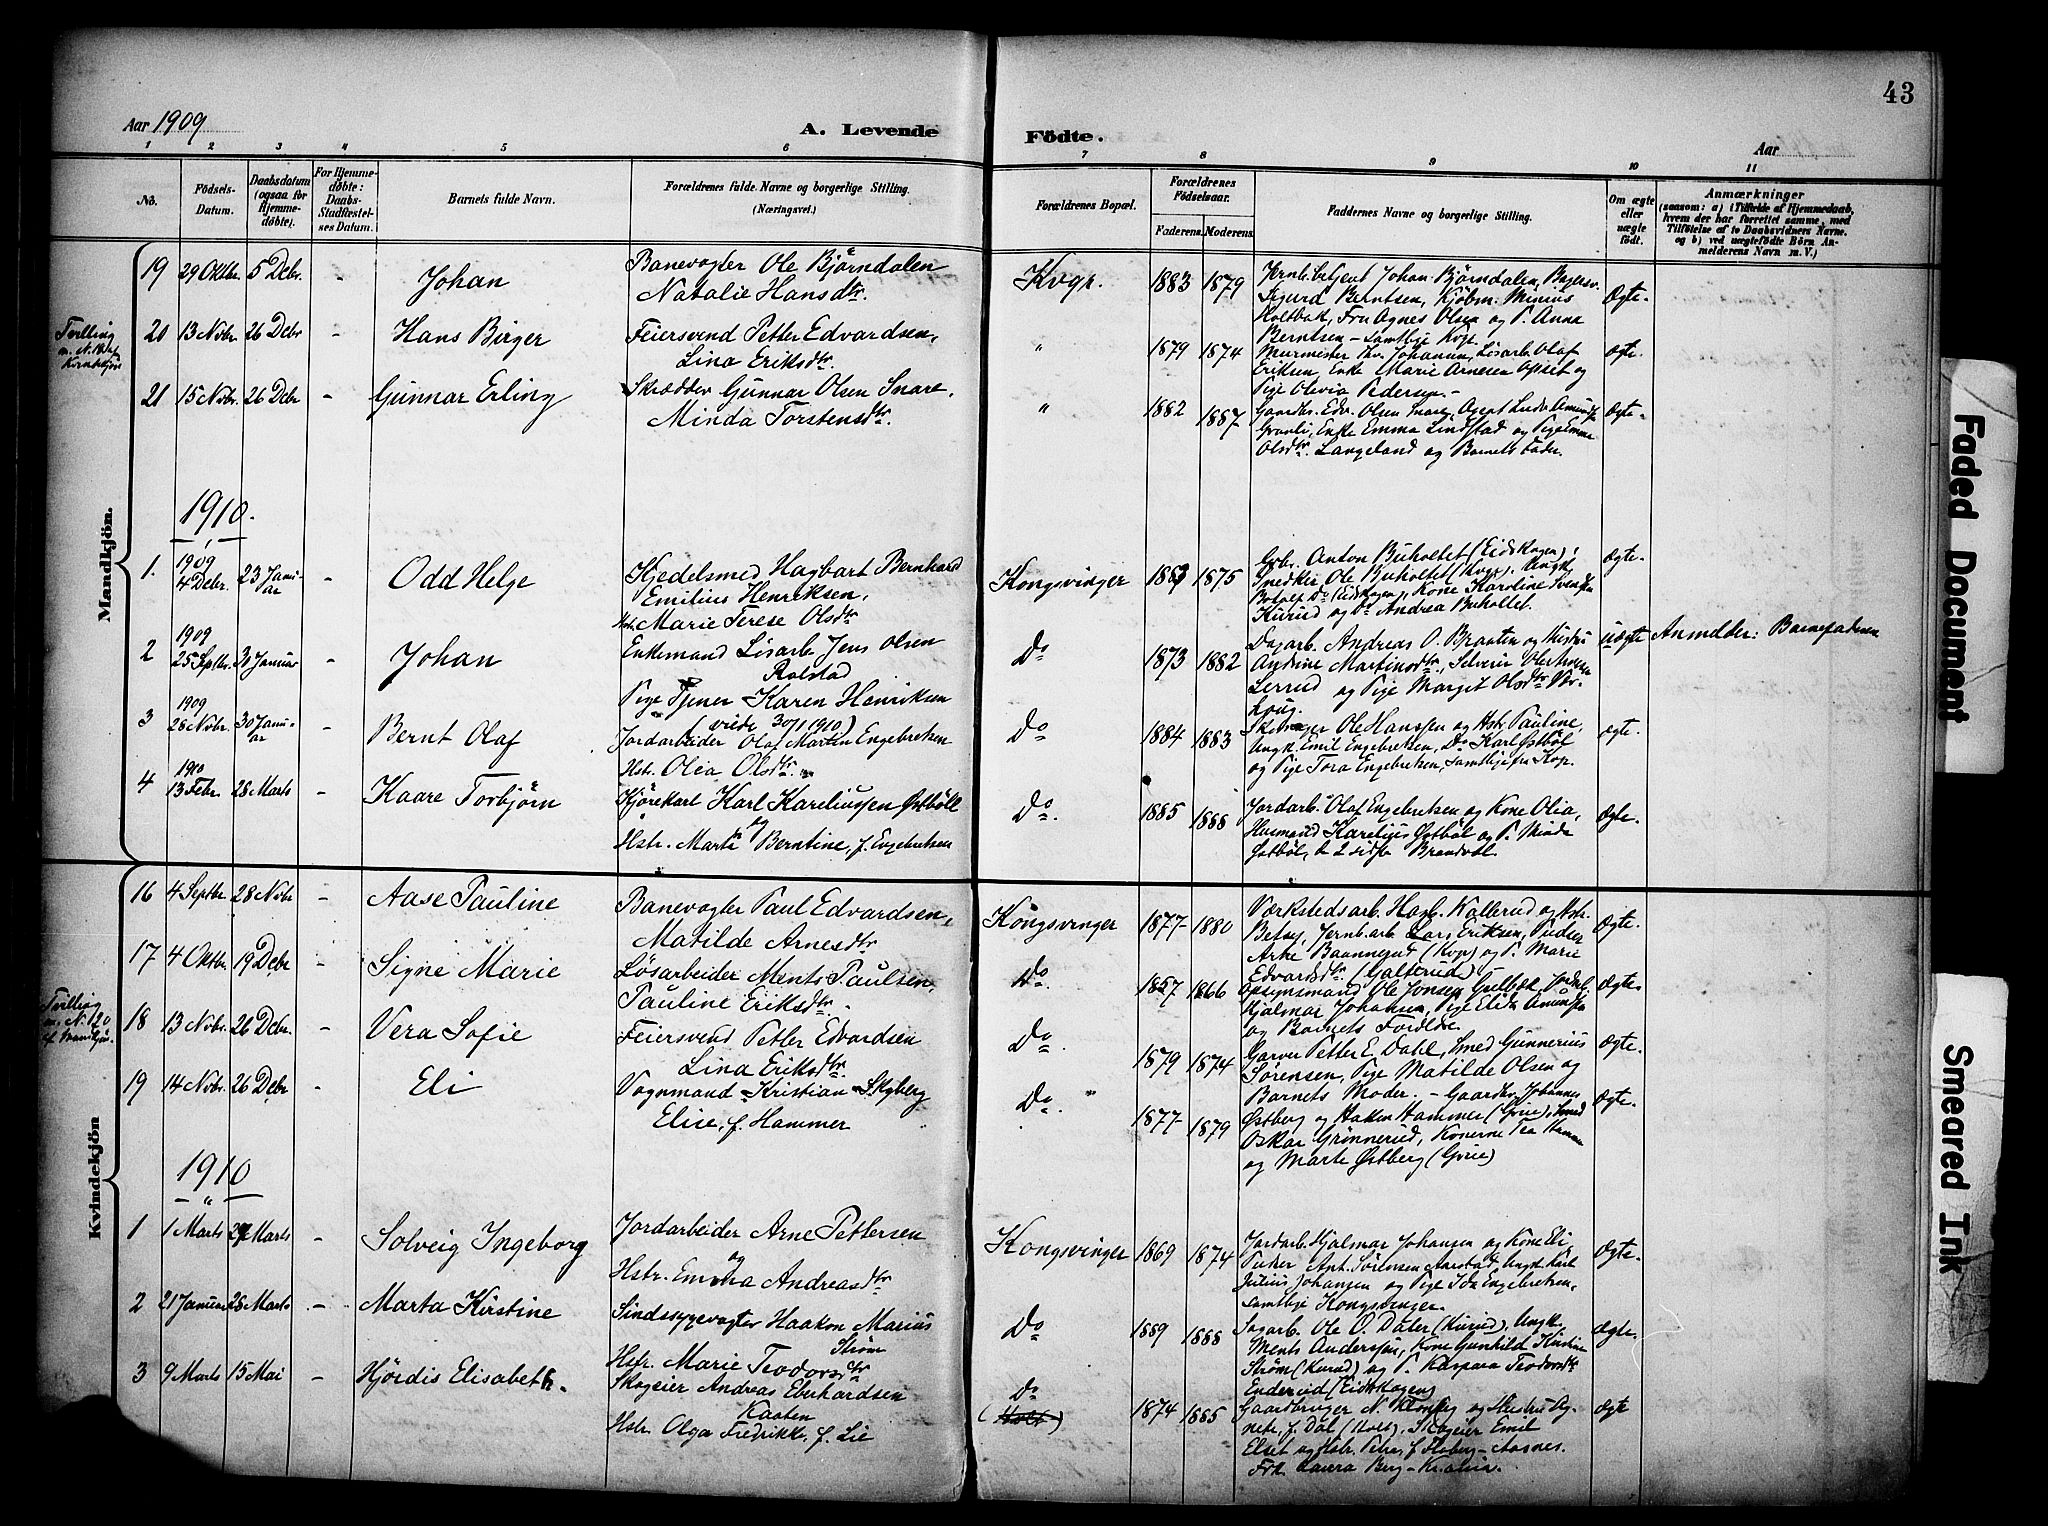 43
Aar 1909
A. Levende
Födte.
Aar
1 2 3 4 5 6 7 8 9 10 11
No.
Födsels-Datum.
Daabsdatum (ogsaa for Hjemme-döbte).
For Hjemme-döbte: Daabs-Stadfæstel-ses Datum.
Barnets fulde Navn.
Forældrenes fulde Navne og borgerlige Stilling. (Næringsvei.)
Forældrenes Bopæl.
Forældrenes Födselsaar.
Faderens. Moderens.
Faddernes Navne og borgerlige Stilling.
Om ægte eller uægte födt.
Anmærkninger
(saasom: a) i Tilfælde af Hjemmedaab, hvem der har forrettet samme, med Tilföielse af to Daabsvidners Navne. og b) ved uægtefödte Börn Anmelderens Navn m. V.)
Mandkjön.
19 29 Oktbr. 5 Debr. - Johan
Banevogter Ole Bjørndalen
Natalie Hansdtr.
Kvgr. 1883 1879
Jernb.betjent Johan Bjørndalen,
Sigurd Berntsen, Kjøbm. Minius
Holtbak, Fru Agnes Olsen og P. Anna
Berntsen - samtlige Kvgr.
Ægte-
Tvilling
20 13 Novbr. 26 Debr - Hans Birger
Feiersvend Petter Edvardsen,
Lina Eriksdtr.
" 1879 1874
Murmester Johansen, Løsarb. Olaf
Eriksen, Enke Marie Arnesen Opset og
Pige Olevia Pedersen. -
Ægte-
21 15 Nvbr. 26 Debr - Gunnar Erling
Skrædder Gunnar Olsen Snare,
Minda Torstensdtr.
" 1882 1887
Gaardbr. Edv. Olsen Snare, Agent Ludv.
Granli, Enke Emma Lindstad og Pige Emma
Olsdtr. Langeland og Barnets Fader.
Ægte-
1910.
1. 1909 4 Debr. 23 Januar - Odd Helge
Kjedelsmed Hagbart Bernhard
Emilius Henriksen,
Hstr. Marie Terese Olsdtr
Kongsvinger 1883 1875
Gbr. Anton Buholtet (Eidskogen),
Snedker Ole Buholtet (Kvgr), Ungk.
Do (Eidskogen), Kone Karoline
Kurud og Do Andrea Buholtet.
Ægte-
2 1909 25 Septbr. 30 Januar - Johan
Enkemand Løsarb. Jens Olsen
Rolstad
Pige Tjener Karen Henriksen
(viede 30/1 1910)
Do 1873 1882
Dagarb. Andreas O. Braaten og Hustru
Andrine Martinsdtr.,
Lerrud og Pige Margit Olsdtr
uægte Anmelder: Barnefaderen
3 1909 28 Novbr. 30 Januar - Bernt Olaf
Jordarbeider Olaf Martin Engebretsen
Hstr. Olea Olsdtr.
Do 1884 1883
Ole Hanssen og Hstr. Pauline,
Ungk. Emil Engebretsen, Do Karl Østbøl
og Pige Tora Engebretsen, samtlige fra Kvgr.
ægte-
4 1910 13 Febr. 28 Marts - Kaare Torbjørn
Kjørekarl Karl Kareliussen Østbøll
og
Hstr. Marta Berntine, f. Engebretsen
Do. 1885 1888
Jordarb. Olaf Engebretsen og Kone Olea,
Husmand Karelius Østbøl og P. Minda
Østbøl, de 2 sidste Brandval.
Ægte.
Kvindekjön
16 4 Septbr. 28 Nvbr - Aase Pauline
Banevogter Paul Edvardsen,
Matilde Arnesdtr
Kongsvinger 1877- 1880
Værkstedsarb. Harb. Kollerud og Hstr.
Betsy, Jernb.arb. Lars Eriksen, Pudser
Arne (Kvgr) og P. Marie
Edvardsdtr (Galterud)
Ægte.
17 4 Oktbr. 19 Debr - Signe Marie
Løsarbeider Ments Paulsen,
Pauline Eriksdtr.
Do. 1857 1866
Opsynsmand Ole Jonsen Gulbæk, Jordarb.
Hjalmar Johansen, Pige Elida
og Barnets Forældre
Ægte
Tvilling
18 13 Nvbr. 26 Debr. - Vera Sofie
Feiersvend Petter Edvardsen
Lina Eriksdtr
Do. 1879 1874
Garver Petter E. Dahl, Smed Gunnerius
Sørensen, Pige Matilde Olsen og
Barnets Moder. -
Ægte-
19 14 Nvbr. 26 Debr - Eli
Vognmand Kristian Skyberg
Elise, f. Hammer
Do. " 1877- 1879
Gaardbr. Johannes
Østberg og Haken Hammer (Grue), Smed
Oskar Grønnerud, Konerne Tea Hammer
og Marte Østberg (Grue)
Ægte.
1910
1 1 Marts 27 Marts - Solveig Ingeborg
Jordarbeider Arne Pettersen
og
Hstr. Emma Andreasdtr
Kongsvinger 1869 1874
Jordarb. Hjalmar Johansen og Kone Eli,
Pudser Ant. Sørensen Aarstad, Ungk. Karl
Julius Johansen og Pige Ida Engebretsen,
samtlige Kongsvinger.
Ægte-
2 21 Januar 28 Marts - Marta Kirstine
Sindssygevogter Haakon Marius
Strøm
Hstr. Marie Teodorsdtr
Do 1889 1888
Sagarb. Ole O. Dáler (Kurud), Ungk.
Ments Anderssen, Kone Gunhild Kirstine
Strøm (Kurud) og P. Kaspara Teodorsdtr
Enderud (Eidskogen)
Ægte-
3 9 Marts 15 Mai - Hjördis Elisabeth.
Skogeier Andreas Eberhardsen
Kaaten
Hstr. Olga Fredrikke, f. Lie
Do
(Holt) 1874 1885
Gaardbruger N. og Hustru Agnete,
f. Dal (Holt), Skogeier Emil
Elset og Hstr. Petra, f. Floberg - Aasnes.
Frk. Laura Berg - Kr.ania.
Ægte
Faded Document
Smeared Ink